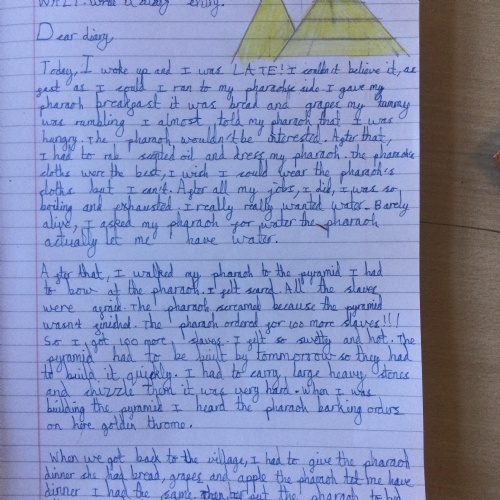 WALT: write a diary entry.
Dear diary,
Today, I woke up and I was LATE! I couldn't believe it, as
fast as I could I ran to my pharaohs side. I gave my
pharaoh breakfast it was bread and grapes my tummy
was rumbling I almost told my pharaoh that I was
hungry. The pharaoh wouldn't be interested. After that,
I had to rub scented oil and dress my pharaoh. the pharaohs
cloths were the best, I wish I could wear the pharaoh's
cloths but I can't. After all my jobs, I did, I was so
boiling and exhausted. I really really wanted water. Barely
alive, I asked my pharaoh for water the pharaoh
actually let me have water.
After that, I walked my pharaoh to the pyramid I had
to bow at the pharaoh. I felt scared. All the slaves
were afraid. The pharaoh screamed because the pyramid
wasnt finished. The pharaoh ordered for 100 more slaves!!!
So I got 100 more slaves. I felt so swetty and hot. The
pyramid had to be built by tommorrow so they had
to build it quickly. I had to carry large heavy stones
and chizzle them it was very hard. When I was
building the pyramid I heard the pharaoh barking orders
on here golden throne.
When we got back to the village, I had to give the pharaoh
dinner she had bread, grapes and apple the pharaoh let me have
dinner I had the same. then to put the pharaoh to be